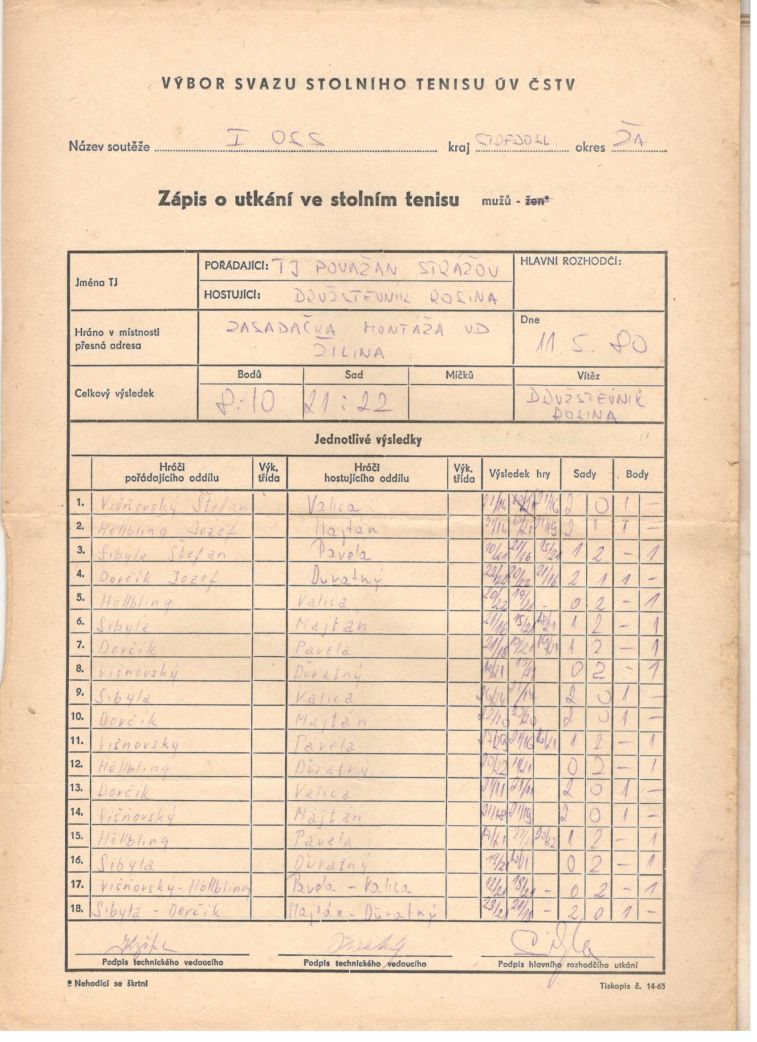 VÝBOR SVAZU STOLNÍHO TENISU ÚV ČSTV
Název soutěže I OSS kraj okres ŽA
Zápis o utkání ve stolním tenisu mužů - žen*
Jména TJ
POŘÁDAJÍCÍ: TJ POVAŽAN STRÁŽOV
HLAVNÍ ROZHODČÍ:
HOSTUJÍCÍ: DRUŽSTEVNÍK ROSINA
Hráno v místnosti přesná adresa
ZASADAČKA MONTÁŽA VD
ŽILINA
Dne
11. 5. 80
Celkový výsledek
Bodů Sad Míčků Vítěz
8:10 21:22 DRUŽSTEVNÍK ROSINA
Jednotlivé výsledky
Hráči pořádajícího oddílu Výk. třída Hráči hostujícího oddílu Výk. třída Výsledek hry Sady Body
1. Višňovský Štefan Valica 2 0 1 -
2. Höllbling Jozef Majtán 2 1 1 -
3. Šibyla Štefan Pavela 1 2 - 1
4. Dorčík Jozef Ďuratný 2 1 1 -
5. Höllbling Valica 20/22 19/21 - 0 2 - 1
6. Šibyla Majtán 1 2 - 1
7. Dorčík Pavela 1 2 - 1
8. Višňovský Ďuratný 0 2 - 1
9. Šibyla Valica 2 0 1 -
10. Dorčík Majtán 2 0 1 -
11. Višňovský Pavela 1 2 - 1
12. Höllbling Ďuratný 0 2 - 1
13. Dorčík Valica 21/11 21/11 2 0 1 -
14. Višňovský Majtán 2 0 1 -
15. Höllbling Pavela 1 2 - 1
16. Šibyla Ďuratný 0 2 - 1
17. Višňovský - Höllbling Pavela - Valica 12/21 18/21 - 0 2 - 1
18. Šibyla - Dorčík Majtán - Ďuratný 23/21 21/18 - 2 0 1 -
Podpis technického vedoucího Podpis technického vedoucího Podpis hlavního rozhodčího utkání
* Nehodící se škrtni Tiskopis č. 14-65